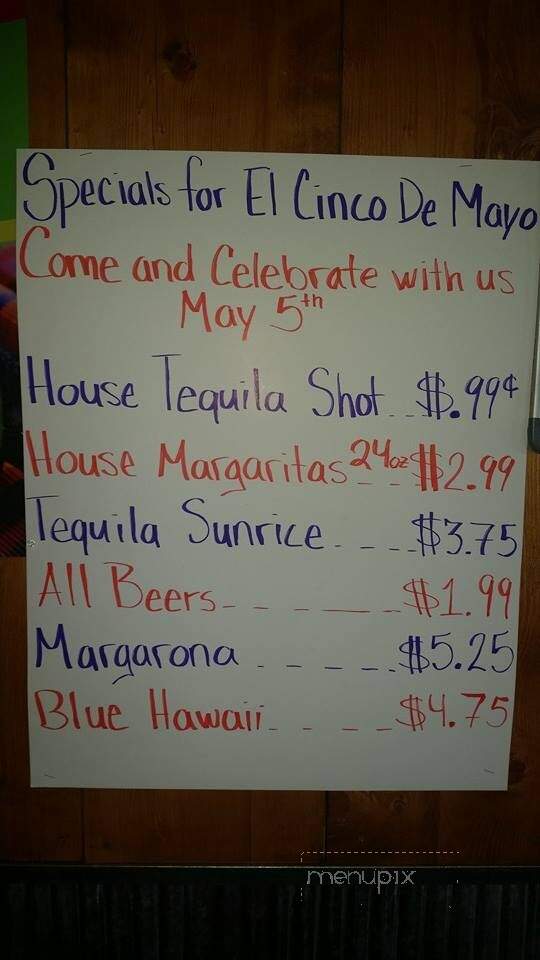 Specials for El Cinco De Mayo
Come and Celebrate with us
May 5th
House Tequila Shot..$.99¢
House Margaritas 24oz--$2.99
Tequila Sunrice.--..$3.75
All Beers-----$1.99
Margarona.----.$5.25
Blue Hawaii.----$4.75
menupix